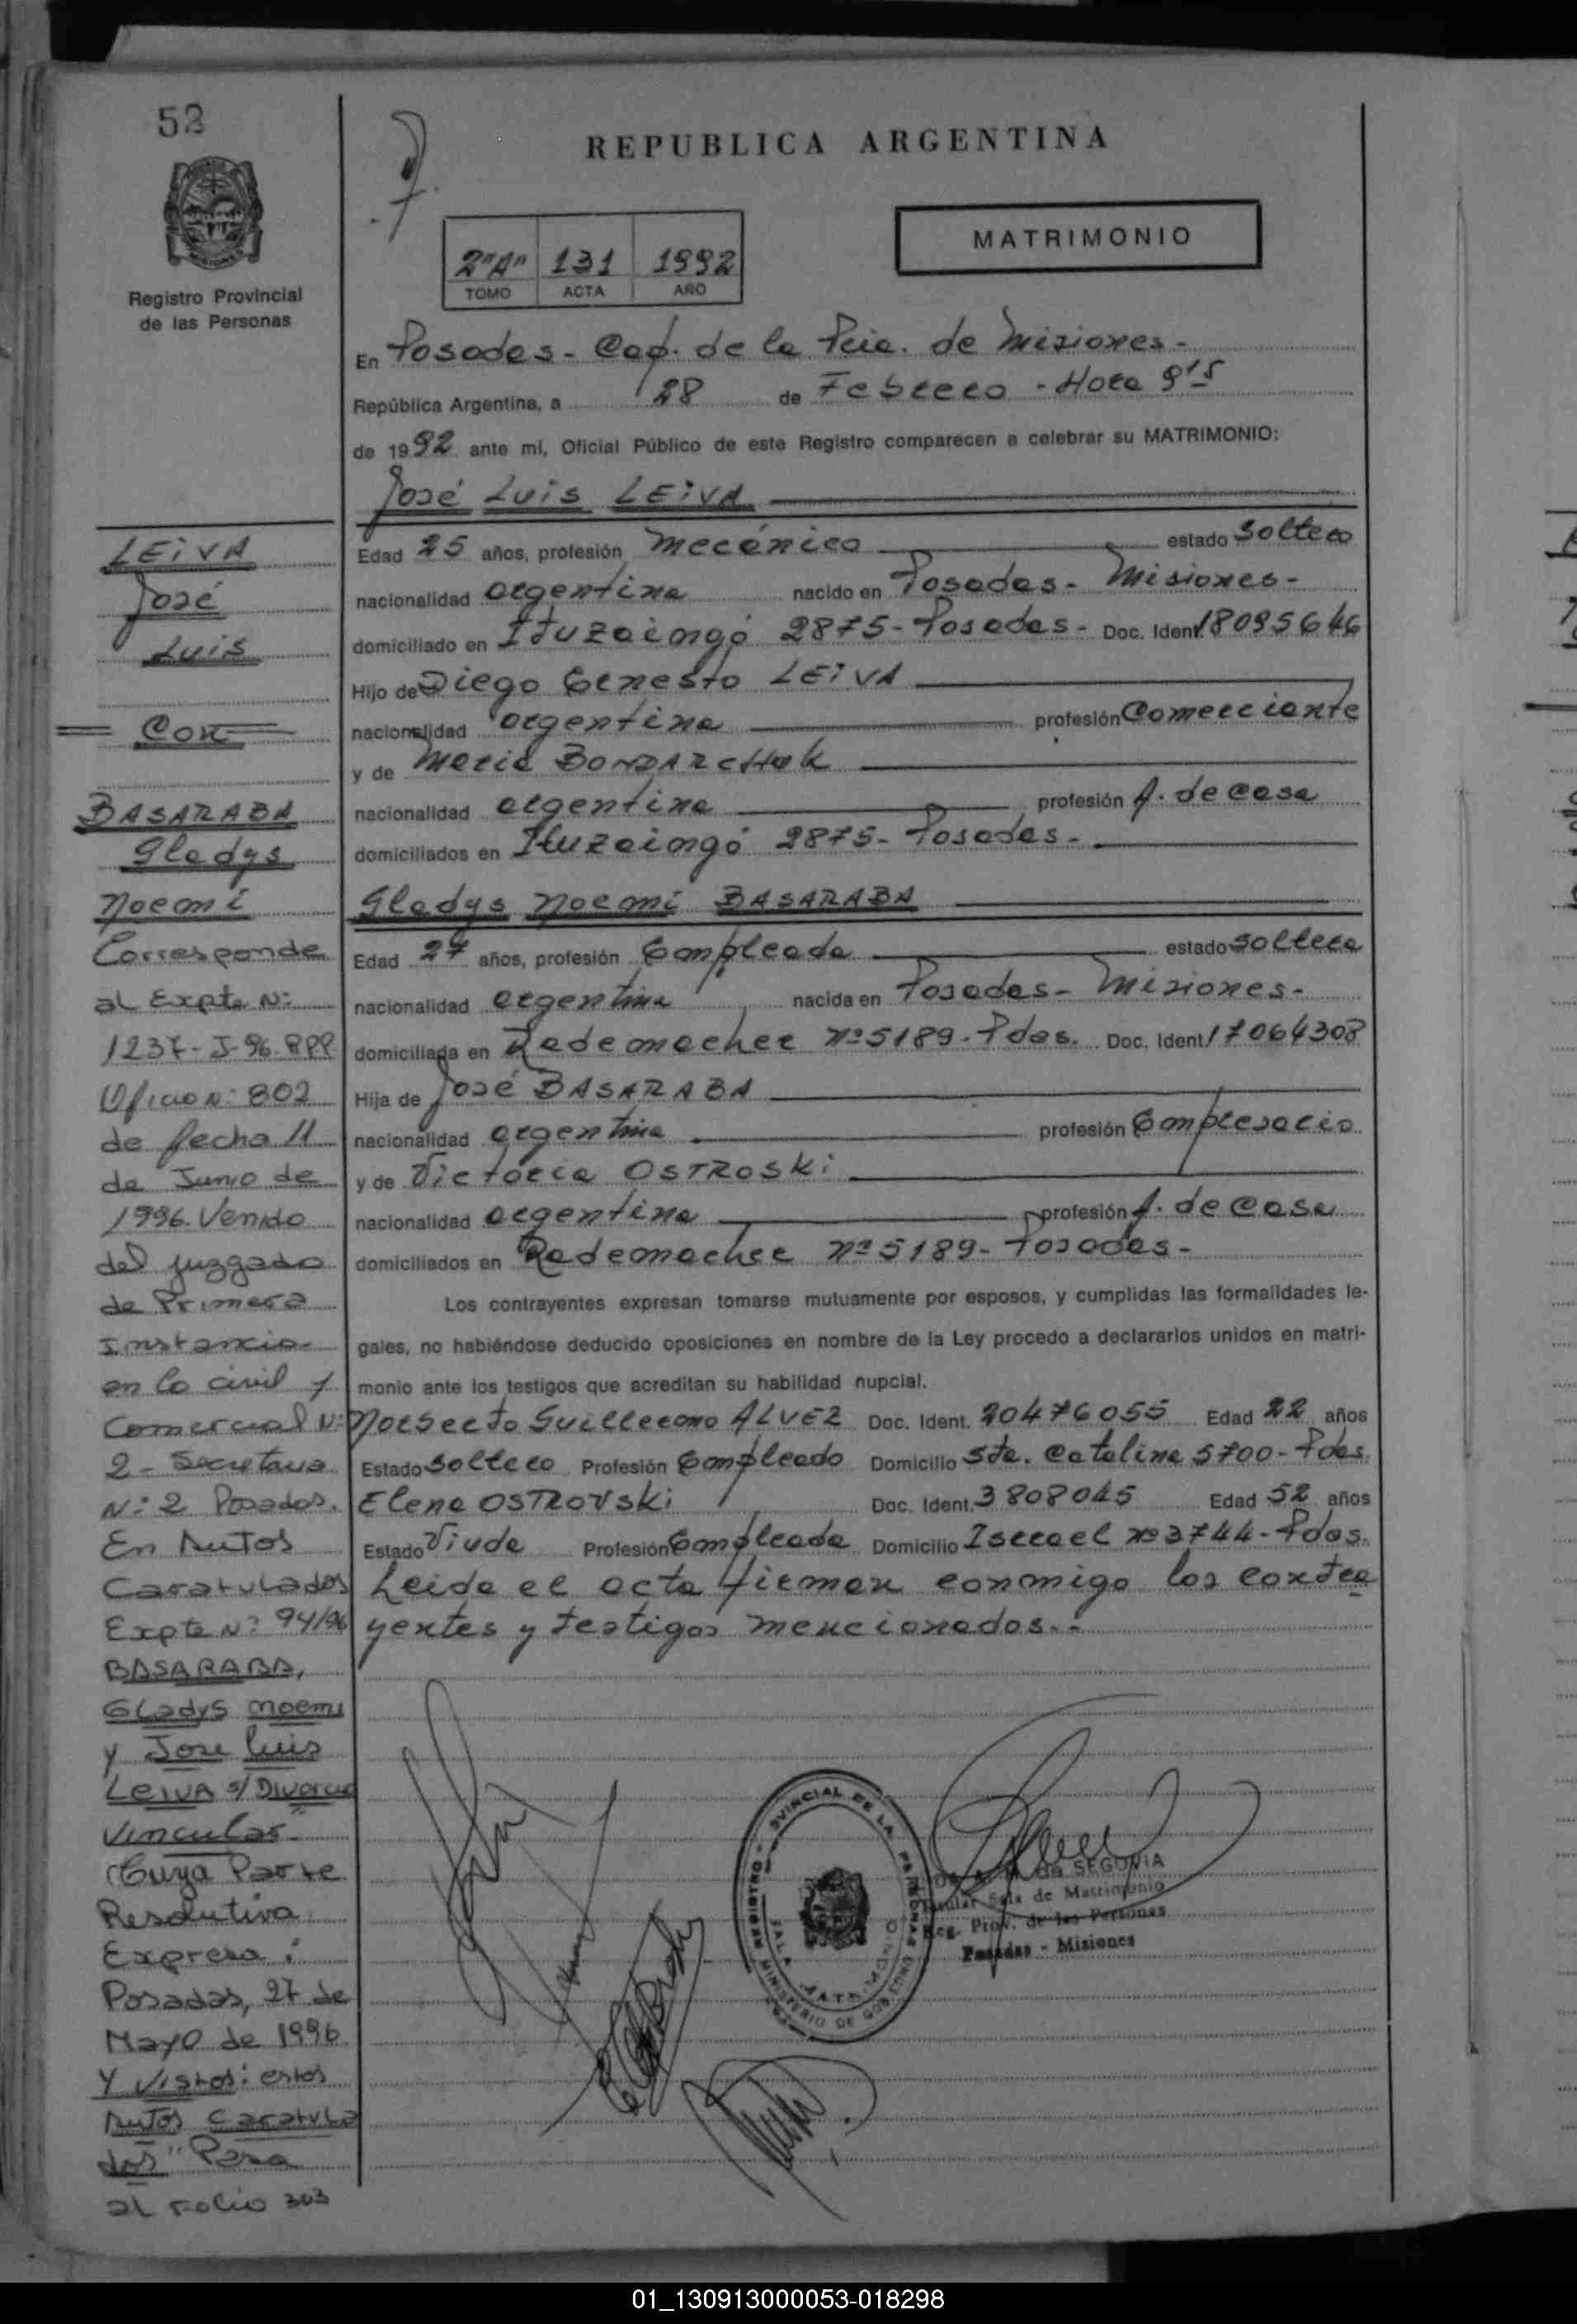 53
REPUBLICA ARGENTINA
MATRIMONIO
2"A" 131 1992
TOMO ACTA AÑO
Registro Provincial
de las Personas
En Posadas - Cap. de la Pcia. de Misiones -
República Argentina, a 28 de Febrero - Hora 9 15
de 1992 ante mi, Oficial Público de este Registro comparecen a celebrar su MATRIMONIO:
José Luis LEIVA
Edad 25 años, profesión Mecánico estado Soltero
nacionalidad argentina nacido en Posadas - Misiones -
domiciliado en Ituzaingó 2875 - Posadas - Doc. Ident. 18095646
Hijo de Diego Ernesto LEIVA
nacionalidad argentina profesión Comerciante
y de Maria BONDARCHUK
nacionalidad argentina profesión A. de casa
domiciliados en Ituzaingó 2875 - Posadas -
Gladys Noemi BASARABA
Edad 27 años, profesión Empleada estado Soltera
nacionalidad argentina nacida en Posadas - Misiones -
domiciliada en Rademacher Nº 5189 - Pdas. Doc. Ident. 17064308
Hija de José BASARABA
nacionalidad argentina profesión Empresario
y de Victoria OSTROSKi
nacionalidad argentina profesión A. de Casa
domiciliados en Rademacher Nº 5189 - Posadas -
Los contrayentes expresan tomarse mutuamente por esposos, y cumplidas las formalidades le-
gales, no habiéndose deducido oposiciones en nombre de la Ley procedo a declararlos unidos en matri-
monio ante los testigos que acreditan su habilidad nupcial.
Norberto Guillermo ALVEZ Doc. Ident. 20476055 Edad 22 años
Estado Soltero Profesión Empleado Domicilio Sta. Catalina 5700 - Pdas.
Elena OSTROVSKi Doc. Ident. 3808045 Edad 52 años
Estado Viuda Profesión Empleada Domicilio Israel Nº 3744 - Pdas.
Leida el acta firman conmigo los contra
yentes y testigos mencionados. -
LEIVA
José
Luis
Con
BASARABA
Gladys
Noemi
Corresponde
al Expte N:
1237-J-96. RPP
Oficio N: 802
de fecha 11
de Junio de
1996. Venido
del juzgado
de Primera
Instancia
en lo civil y
Comercial N:
2 - Secretaria
N: 2 Posadas.
En Autos
Caratulados
Expte N: 94/96
BASARABA,
Gladys Noemi
y Jose Luis
LEIVA s/ Divorcio
Vincular
Cuya Parte
Resolutiva
Expresa:
Posadas, 27 de
Mayo de 1996
Y Vistos: estos
Autos Caratula
dos" Pasa
al Folio 303
de SEGOVIA
Titular Sala de Matrimonio
Reg. Prov. de las Personas
Posadas - Misiones
REGISTRO PROVINCIAL DE LA PERSONAS
MINISTERIO DE GOBIERNO
SALA MATRIMONIO
01_130913000053-018298